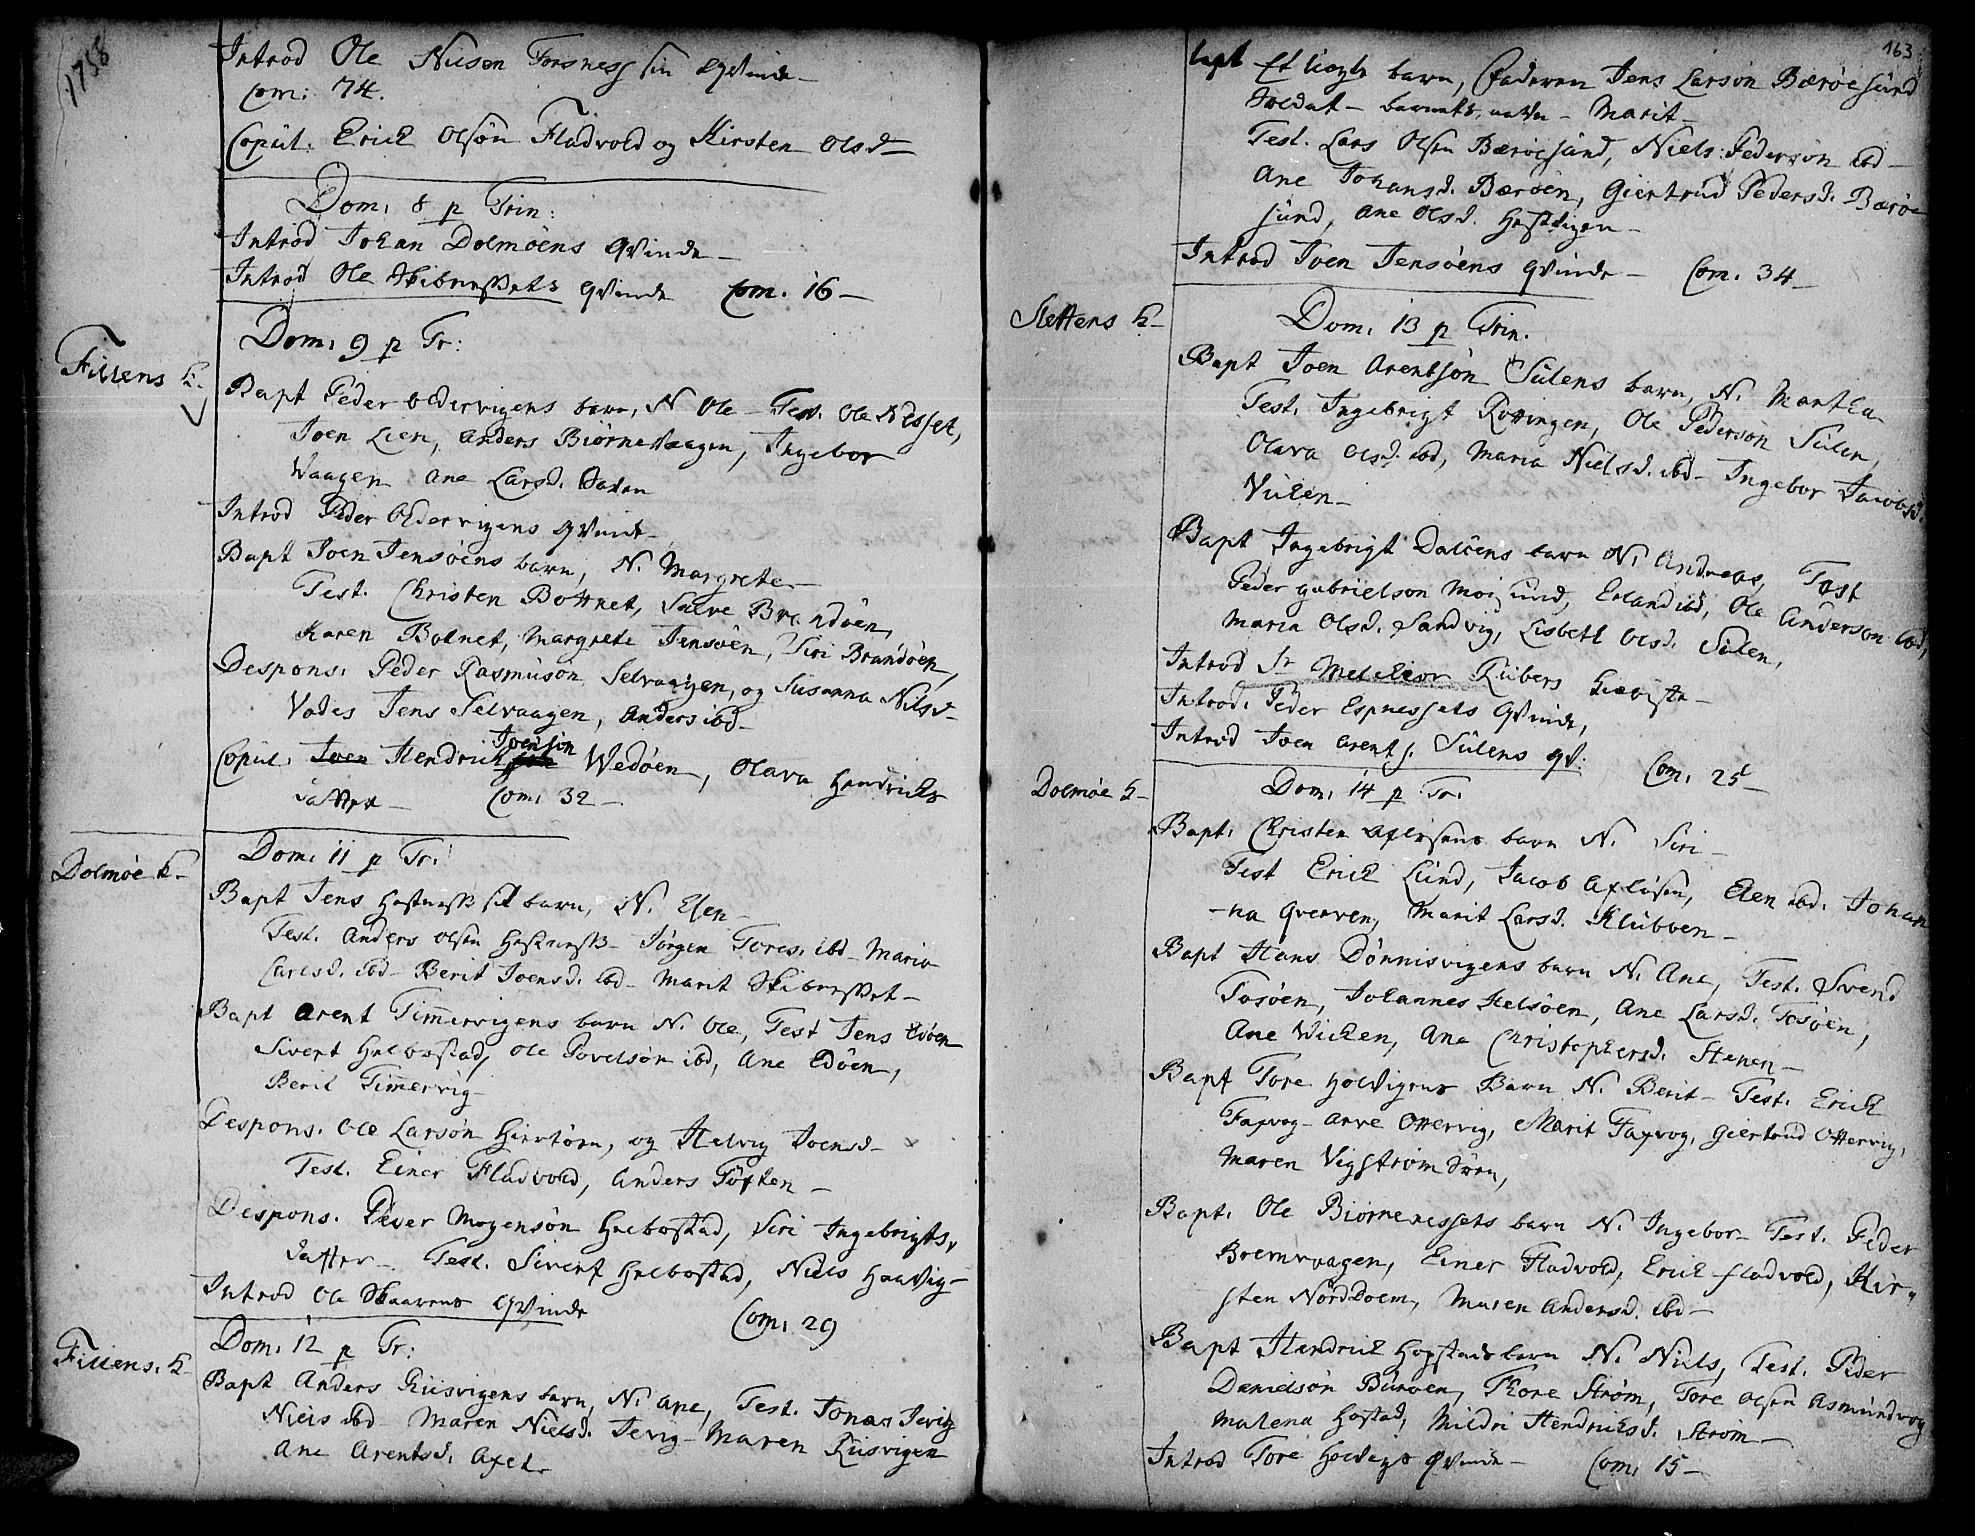 1758
Introd Ole Nilsen Forsness sin qvinde
Com: 74.
Copul. Erich Olsön Fladvold og Kirsten Olsd
Dom. 8 p Trin:
Introd Johan Dolmöens qvinde
Introd Ole Skibnessets qvinde Com. 16
Fillens K.
Dom. 9 p Tr:
Bapt Peder Oldervigens barn, N Ole Test. Ole Nesset,
Joen Lien, Anders Biörnevaagen, Ingebor
Waagen Ane Larsd.
Introd Peder Oldervigens qvinde
Bapt Joen Jensöens barn, N. Margrete
Test. Christen Bottnet, Salve Brandöen,
Karen Botnet, Margrete Jensöen, Siri Brandöen,
Despons. Peder Rasmuson Selvaagen, og Susanna Nilsd
Vades Jens Selvaagen, Anders ibd
Copul. Joen Hendrich Joensön Wedöen, Olava Hendrichs
datter Com. 32
Dolmöe K.
Dom. 11 p Tr.
Bapt Jens Hestness sit barn, N. Elen
Test. Anders Olsen Hestness Jörgen Tores. ibd Marie
Larsd. ibd Berit Joensd. ibd Marit Skibnesset
Bapt Arent Timmervigens barn N. Ole, Test Jens Edöen
Sivert Helbostad, Ole Povelsön ibd, Ane Edöen,
Berit Timmervig
Despons. Ole Larsön Herntörn, og Helvig Joensd
Test. Einer Fladvold, Anders Töften
Despons. Peder Mogensön Helbostad, Siri Ingebrigts
datter Test. Sivert Helbostad, Niels
Introd Ole Skaarens qvinde
Com. 29
Fillens. K
Dom. 12 p Tr:
Bapt Anders Riisvigens barn, N. Ane, Test. Jonas Jevig
Niels ibd Maren Nielsd. Jevig Maren Riisvigen
Ane Arentsd. Axel.
163
bapt Et barn, Faderen Jens Larsön Baröesund
Soldat barnets Marit
Test. Lars Olsen Baröesund, Niels Pedersön ibd
Ane Johansd. Baröen, Giertrud Pedersd. Baröe
sund, Ane Olsd.
Introd Joen Jensöens qvinde Com. 34
Slettens K
Dom. 13 p Trin.
Bapt Joen Arentsön Sulens barn, N. Martha
Test. Ingebrigt Rottingen, Ole Pedersön Sulen,
Olava Olsd. ibd, Maria Nielsd. ibd Ingebor Jacobsd.
Vulen
Bapt Ingebrigt Dalöens barn N. Andreas, Test
Peder Gabrielson Moisund, Erland ibd, Ole Anderson ibd,
Maria Olsd. Sandvig, Lisbeth Olsd. Sulen,
Introd Sr Melchior Rubers
Introd. Peder Espnessets Qvinde,
Introd Joen Arents. Sulens qv.
Com. 25
Dolmöe K
Dom. 14 p Tr.
Bapt. Christen Axelsens barn N. Siri
Test Erich Lund, Jacob Axlösen, Elen ibd. Johan
na Qverven, Marit Larsd. Klubben
Bapt Hans Dönnisvigens barn N. Ane, Test. Svend
Tosöen, Johannes Helsöen, Ane Larsd. Tosöen,
Ane Wichen, Ane Christophersd. Stenen
Bapt Tore Holvigens Barn N. Berit Test. Erich
Faxvog Arve Ottervig, Marit Faxvog, Giertrud Ottervig,
Maren Vigström
Bapt. Ole Biörnenessets barn N. Ingebor Test. Peder
Bremvaagen, Einer Fladvold, Erich Fladvold, Kir
sten Norddolm, Maren Andersd. ibd
Bapt Hendrich Hopstads barn N. Niels, Test. Peder
Danielsön Buröen, Thore Ström, Tore Olsen Asmundvog
Malena Hostad, Mildri Hendrichsd. Ström
Introd Tore Holvigs Qvinde Com. 15